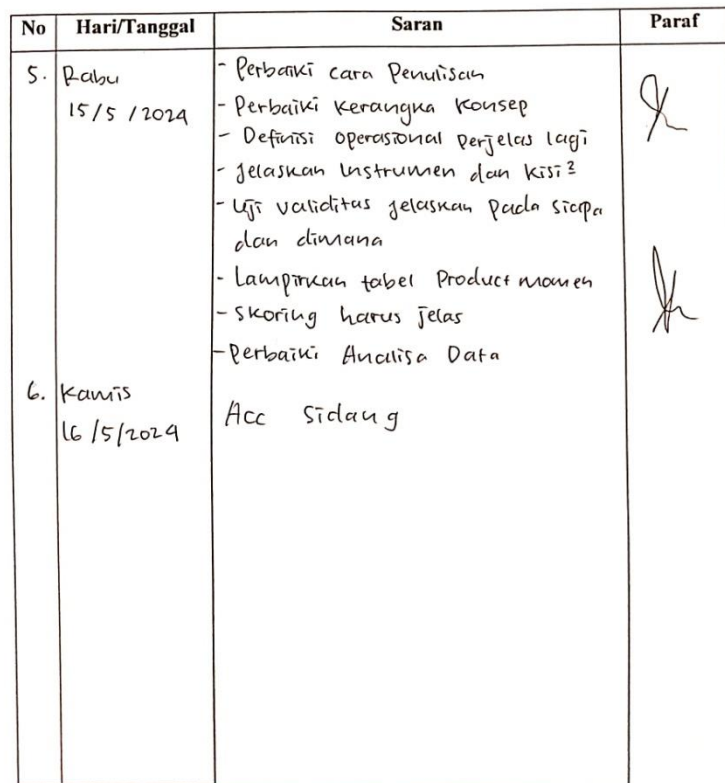 No Hari/Tanggal Saran Paraf
5. Rabu - Perbaiki cara Penulisan
15/5/2024 - Perbaiki Kerangka Konsep
- Definisi operasional perjelas lagi
- Jelaskan Instrumen dan Kisi²
- Uji validitas jelaskan pada siapa
dan dimana
- Lampirkan tabel Product momen
- Skoring harus jelas
- Perbaiki Analisa Data
6. Kamis
16/5/2024 Acc Sidang